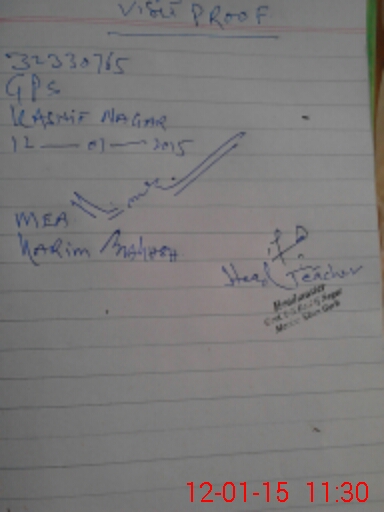 VISIT PROOF
32330765
GPS
KASHIF NAGAR
12 — 01 — 2015
MEA
KARIM BAKHSH
Head Teacher
Headmaster
12-01-15 11:30